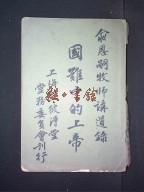 俞恩嗣牧師講道錄
國難中的上帝
上海
彼得堂
堂務委員會刊行